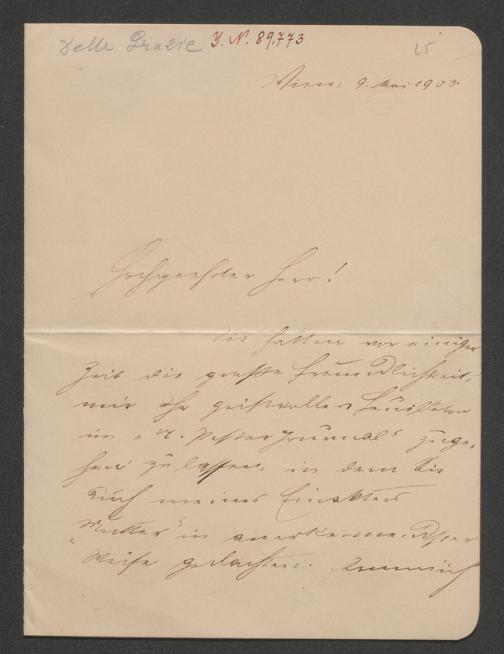 Delle Grazie J. N. 89.773
25
Wien, 9. Mai 1903.
Hochgeehrter Herr!
Sie hatten vor einiger
Zeit die große Freundlichkeit,
mir Ihr geistvolles Feuilleton
im „N. Pester Journal“ zuge-
hen zu lassen, in dem Sie
auch meines Einakters
„Mutter“ in anerkennendster
Weise gedachten.